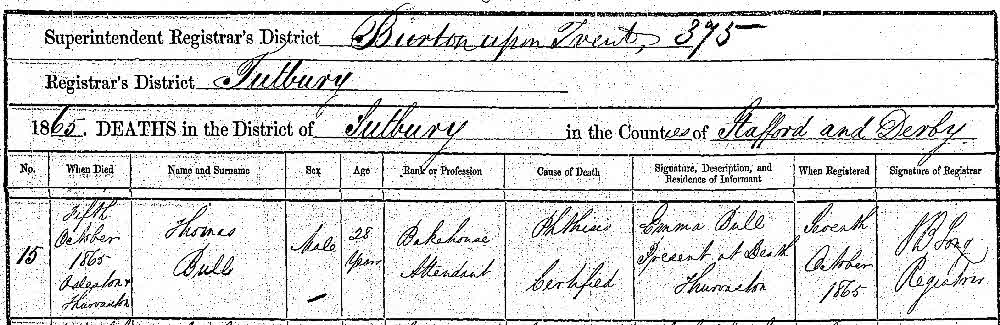 Superintendent Registrar's District Burton upon Trent, 375
Registrar's District Tutbury
1865. DEATHS in the District of Tutbury in the Counties of Stafford and Derby
No. When Died Name and Surname Sex Age Rank or Profession Cause of Death Signature, Description, and Residence of Informant When Registered Signature of Registrar
15
Fifth
October
1865
Osleston &
Thurvaston
Thomas
Bull
Male
28
Years
Bakehouse
Attendant
Phthisis
Certified
Emma Bull
Present at Death
Thurvaston
Seventh
October
1865
Long
Registrar